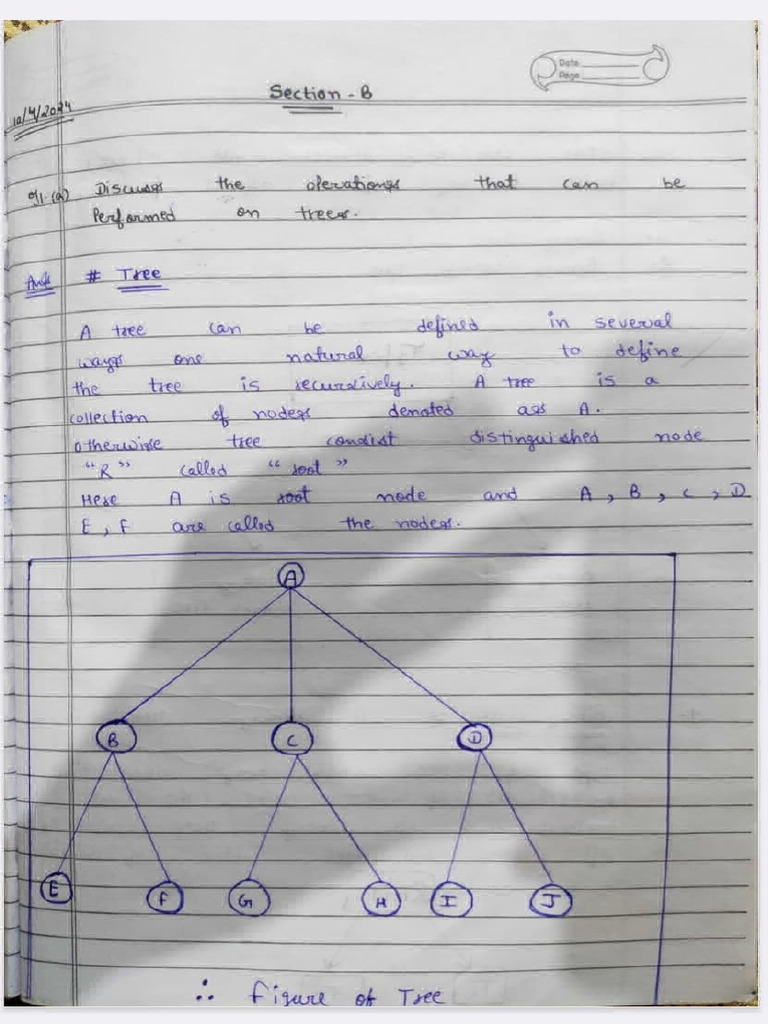 Date
Page
Section - B
10/4/2024
Q1.(a) Discuss the operations that can be
Performed on trees.
Ans # Tree
A tree can be defined in several
ways one natural way to define
the tree is recursively. A tree is a
collection of nodes denoted as A.
otherwise tree consist distinguished node
"R" called "root"
Here A is root node and A, B, C, D
E, F are called the nodes.
A
B C D
E F G H I J
∴ Figure of Tree